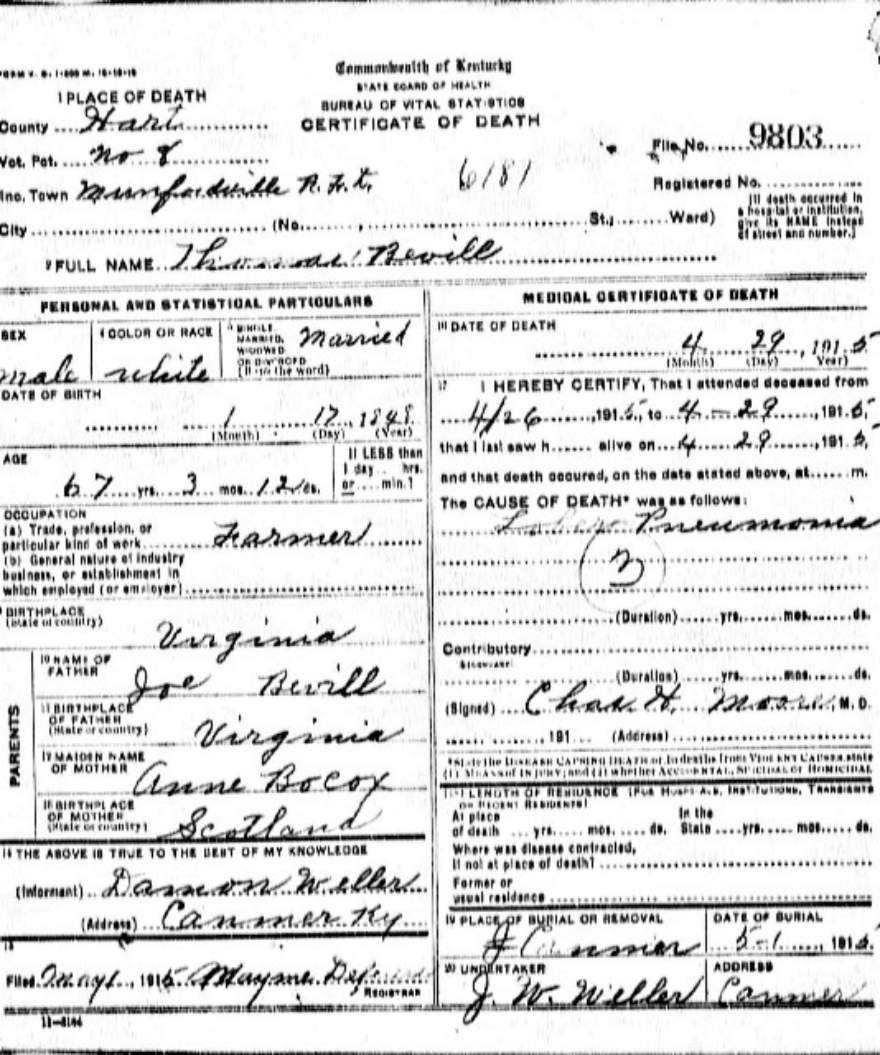 Commonwealth of Kentucky
STATE BOARD OF HEALTH
BUREAU OF VITAL STATISTICS
CERTIFICATE OF DEATH
1 PLACE OF DEATH
County Hart
Vot. Pct. No 8
Inc. Town Munfordville R.F.D.
6181
File No. 9803
Registered No.
City (No. St.; Ward)
[If death occurred in
a hospital or institution,
give its NAME instead
of street and number.]
2 FULL NAME Thomas Bevill
PERSONAL AND STATISTICAL PARTICULARS
SEX male
4 COLOR OR RACE white
5 SINGLE,
MARRIED,
WIDOWED
OR DIVORCED
(Write the word)
Married
DATE OF BIRTH
1 17, 1848
(Month) (Day) (Year)
AGE
67 yrs. 3 mos. 12 ds.
If LESS than
1 day hrs.
or min.?
OCCUPATION
(a) Trade, profession, or
particular kind of work Farmer
(b) General nature of industry
business, or establishment in
which employed (or employer)
BIRTHPLACE
(State or country)
Virginia
PARENTS
10 NAME OF
FATHER
Joe Bevill
11 BIRTHPLACE
OF FATHER
(State or country)
Virginia
12 MAIDEN NAME
OF MOTHER
Anne Bocox
13 BIRTHPLACE
OF MOTHER
(State or country)
Scotland
14 THE ABOVE IS TRUE TO THE BEST OF MY KNOWLEDGE
(Informant) Damon Weller
(Address) Canmer Ky
15
Filed May 1, 1915 Mayme
REGISTRAR
11-3184
MEDICAL CERTIFICATE OF DEATH
16 DATE OF DEATH
4 29, 1915
(Month) (Day) Year)
17 I HEREBY CERTIFY, That I attended deceased from
4/26, 1915, to 4-29, 1915,
that I last saw h alive on 4 29, 1915,
and that death occured, on the date stated above, at m.
The CAUSE OF DEATH* was as follows:
Lober Pneumonia
(Duration) yrs. mos. ds.
Contributory
(Duration) yrs. mos. ds.
(Signed) Chas. H. Moore, M. D.
, 191 (Address)
*State the DISEASE CAUSING DEATH or, in deaths from VIOLENT CAUSES, state
(1) MEANS OF INJURY; and (2) whether ACCIDENTAL, SUICIDAL or HOMICIDAL
LENGTH OF RESIDENCE (FOR HOSPITALS, INSTITUTIONS, TRANSIENTS
OR RECENT RESIDENTS)
At place In the
of death yrs. mos. ds. State yrs. mos. ds.
Where was disease contracted,
if not at place of death?
Former or
usual residence
19 PLACE OF BURIAL OR REMOVAL
Canmer
DATE OF BURIAL
5-1, 1915
20 UNDERTAKER
J. W. Weller
ADDRESS
Canmer